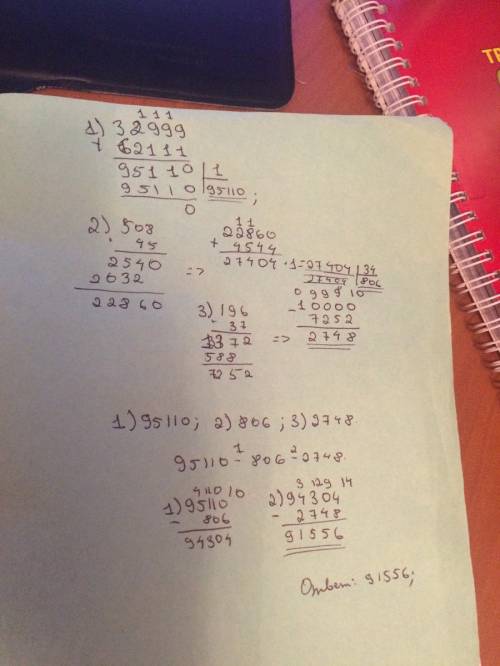 ТР
1 1 1
1) 32999
+ 62111
95110 | 1
95110 | 95110 ;
0
2) 508
· 45
2540
2032
22860
=>
1 1
22860
+ 4544
27404 · 1 = 27404 | 34
27404 | 806
0 9 9 9 10
3) 196
· 37
1372
588
7252
=>
- 10000
7252
2748
1) 95110 ; 2) 806 ; 3) 2748.
1 2
95110 - 806 - 2748.
4 11 0 10
1) 95110
- 806
94304
3 12 9 14
2) 94304
- 2748
91556
Ответ: 91556;